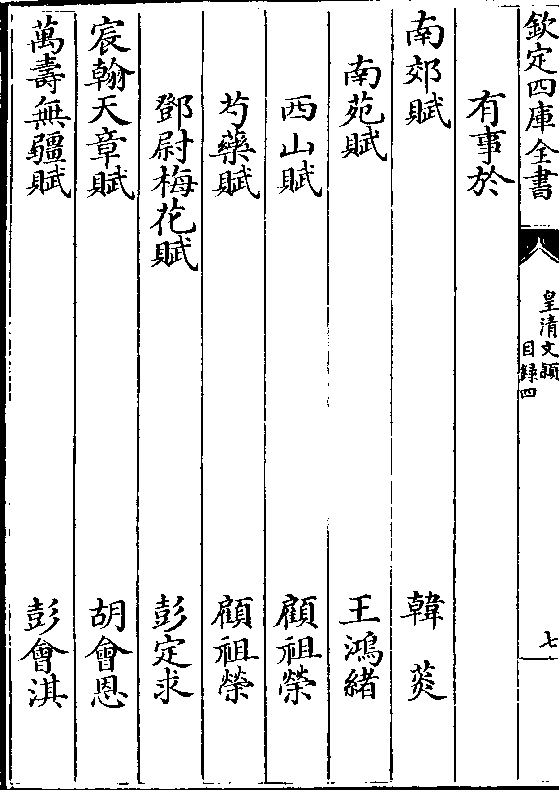 欽定四庫全書
皇清文穎
目録四
七
有事於
南郊賦 韓菼
南苑賦 王鴻緒
西山賦 顧祖榮
芍藥賦 顧祖榮
鄧尉梅花賦 彭定求
宸翰天章賦 胡會恩
萬壽無疆賦 彭會淇